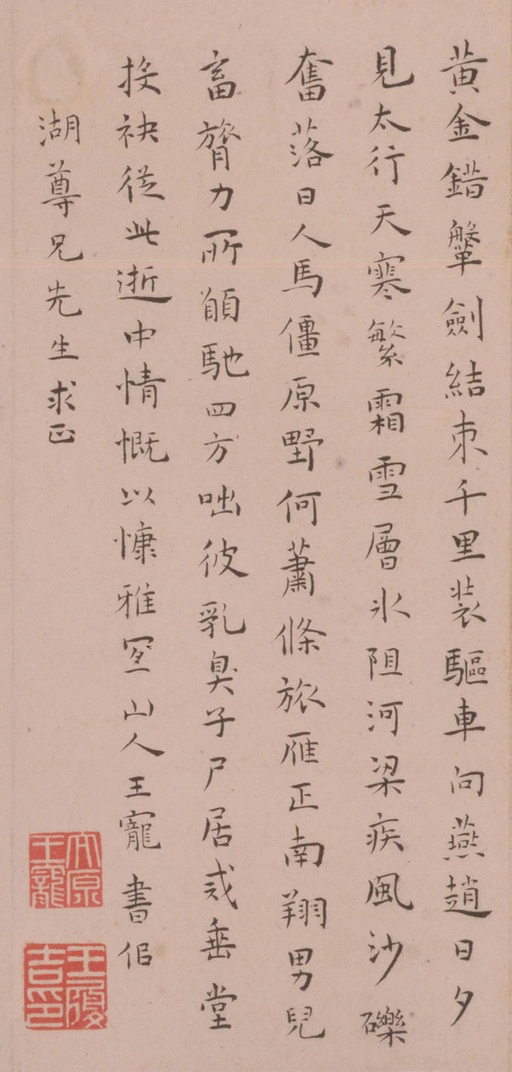 黄金錯鞶劍結束千里装驅車向燕趙日夕
見太行天寒繁霜雪層氷阻河梁疾風沙礫
奮落日人馬僵原野何蕭條旅雁正南翔男兒
畜膂力所願馳四方咄彼乳臭子尸居戒垂堂
投袂從此逝中情慨以慷雅宜山人王寵書似
湖尊兄先生求正
王履吉印